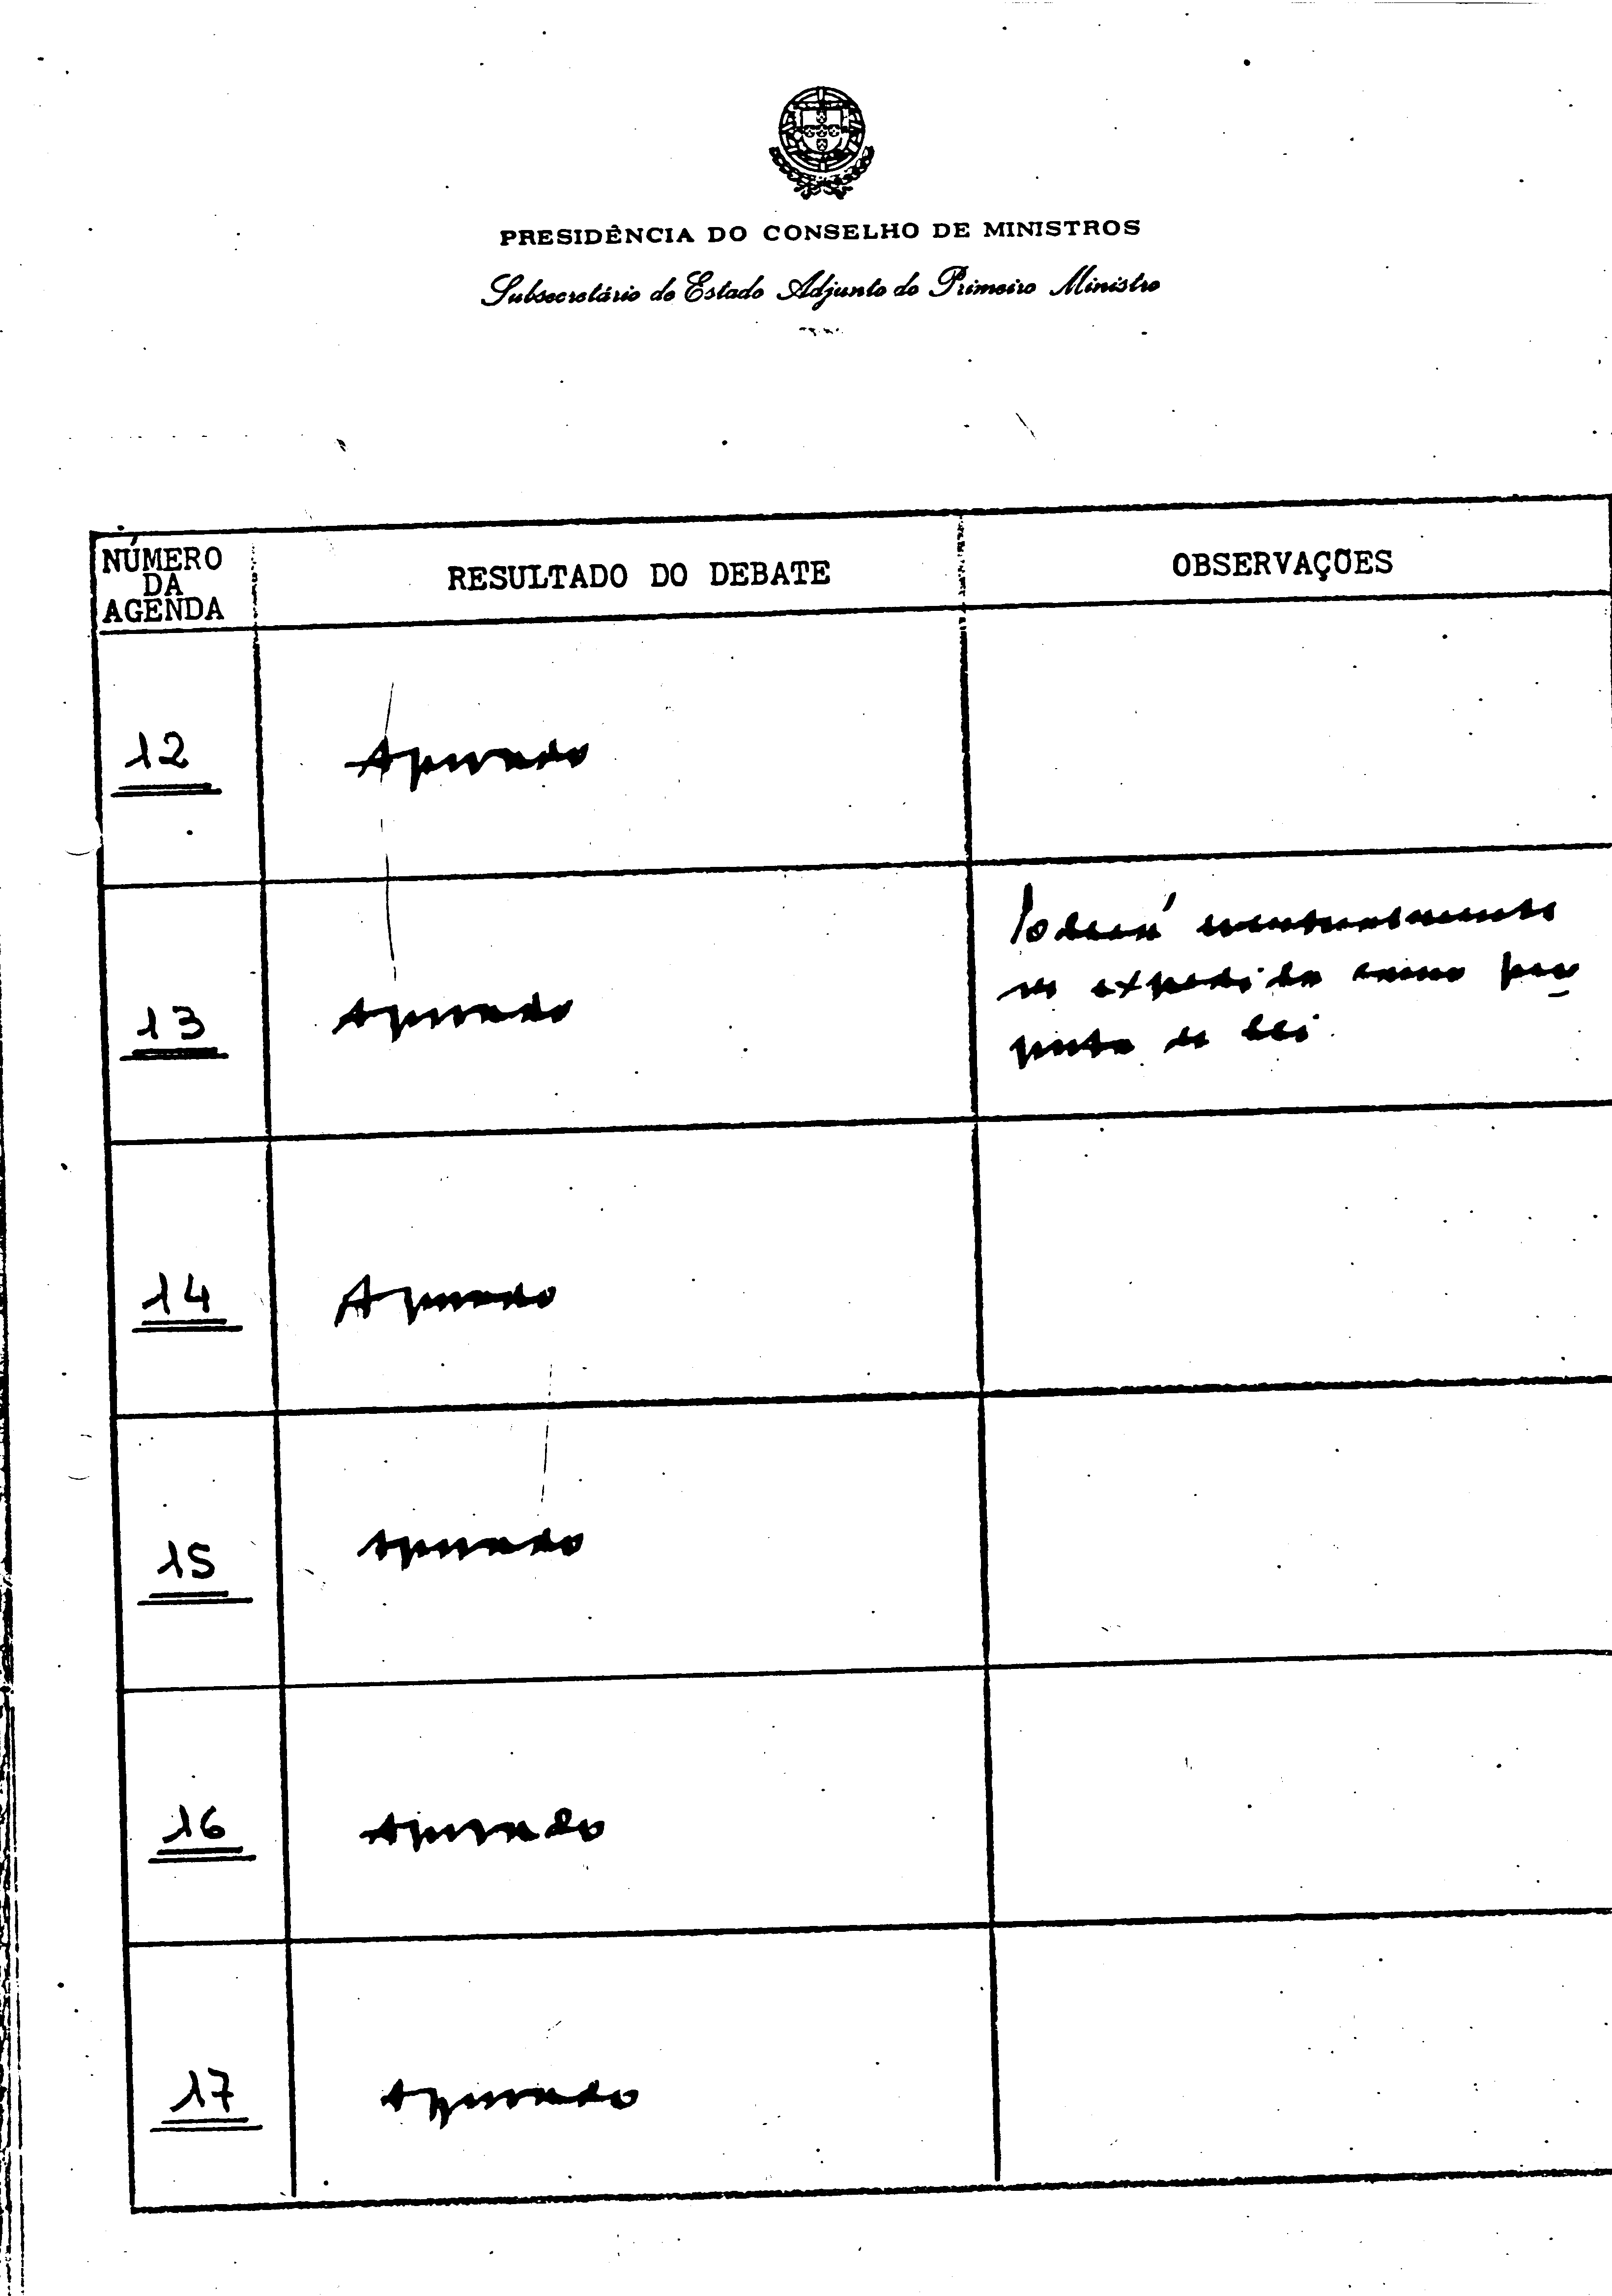 PRESIDÊNCIA DO CONSELHO DE MINISTROS
Subsecretário de Estado Adjunto do Primeiro Ministro
NÚMERO
DA
AGENDA
RESULTADO DO DEBATE
OBSERVAÇÕES
12
Aprovado
13
Aprovado
Poderá eventualmente
ser expedido como pro
posta de lei.
14
Aprovado
15
Aprovado
16
Aprovado
17
Aprovado